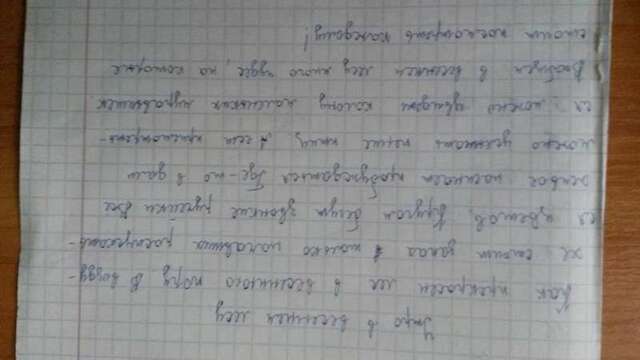 Утро в весеннем лесу
Как прекрасен лес в весеннюю пору В возду-
хе стоит запах только начавших распускать-
ся цветов. Кругом бегут звонкие ручейки Всё
живое начинает пробуждаться Где-то в дали
можно услышать пение птиц. А если присмотреть-
ся можно увидеть колону маленьких муравьишек
Вообщем в весеннем лесу много чудес, на которые
стоит посмотреть каждому!